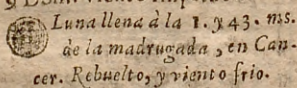 Luna llena à la 1. y 43. ms.
de la madrugada, en Can-
cer. Rebuelto, y viento frio.